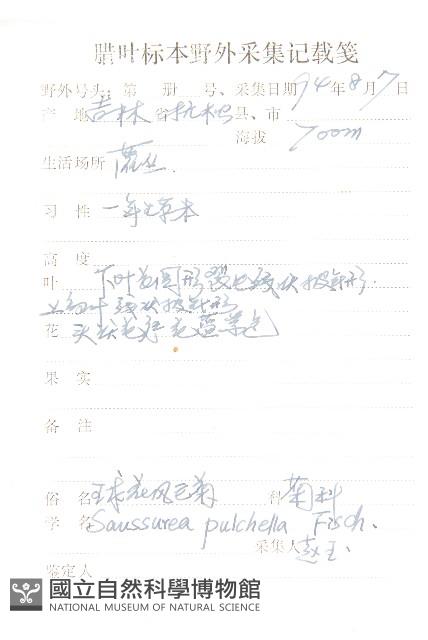 腊叶标本野外采集记载笺
野外号头:第 册 号、采集日期94年8月7日
产 地 吉林省抚松县、市
海拔 700m
生活场所 灌丛
习 性 一年生草本
高 度
叶 下叶 圆形 披针形
上部叶 线状披针形
花 头状花序 花蓝紫色
果 实
备 注
俗 名 球花风毛菊 科 菊科
学 名 Saussurea pulchella Fisch.
采集人 赵
鉴定人
國立自然科學博物館
NATIONAL MUSEUM OF NATURAL SCIENCE